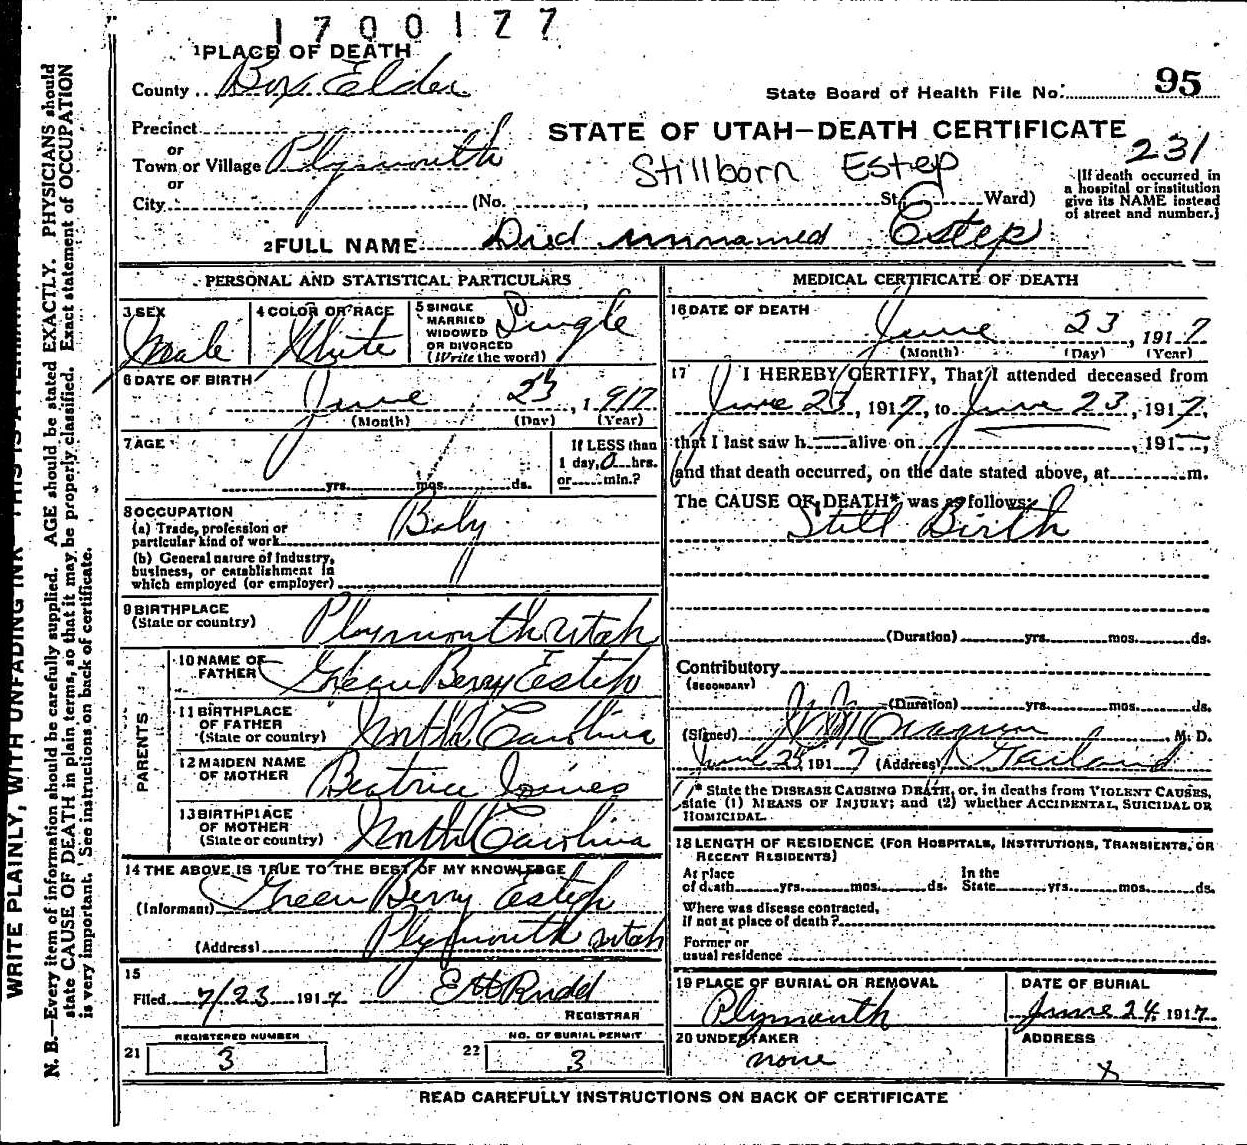 1700177
1 PLACE OF DEATH
County .. Box Elder
State Board of Health File No. 95
Precinct
or
Town or Village Plymouth
or
City (No. , St. Ward)
STATE OF UTAH—DEATH CERTIFICATE
231
Stillborn Estep
[If death occurred in
a hospital or institution
give its NAME instead
of street and number.]
2 FULL NAME Died unnamed Estep
PERSONAL AND STATISTICAL PARTICULARS
3 SEX
Male
4 COLOR OR RACE
White
5 SINGLE
MARRIED
WIDOWED
OR DIVORCED
(Write the word)
Single
6 DATE OF BIRTH
June 23, 1917
(Month) (Day) (Year)
7 AGE
yrs. mos. ds.
If LESS than
1 day, 0 hrs.
or min.?
8 OCCUPATION
(a) Trade, profession or
particular kind of work Baby
(b) General nature of industry,
business, or establishment in
which employed (or employer)
9 BIRTHPLACE
(State or country) Plymouth Utah
PARENTS
10 NAME OF
FATHER Green Berry Estep
11 BIRTHPLACE
OF FATHER
(State or country) North Carolina
12 MAIDEN NAME
OF MOTHER Beatrice Joines
13 BIRTHPLACE
OF MOTHER
(State or country) North Carolina
14 THE ABOVE IS TRUE TO THE BEST OF MY KNOWLEDGE
(Informant) Green Berry Estep
(Address) Plymouth Utah
15
Filed 7/23 1917 E H Rudd
REGISTRAR
REGISTERED NUMBER
21 3
NO. OF BURIAL PERMIT
22 3
MEDICAL CERTIFICATE OF DEATH
16 DATE OF DEATH
June 23, 1917
(Month) (Day) (Year)
17 I HEREBY CERTIFY, That I attended deceased from
June 23, 1917, to June 23, 1917,
that I last saw h alive on , 191 ,
and that death occurred, on the date stated above, at m.
The CAUSE OF DEATH* was as follows:
Still Birth
(Duration) yrs. mos. ds.
Contributory
(SECONDARY)
(Duration) yrs. mos. ds.
(Signed) M. D.
June 1917 (Address)
* State the DISEASE CAUSING DEATH, or, in deaths from VIOLENT CAUSES,
state (1) MEANS OF INJURY; and (2) whether ACCIDENTAL, SUICIDAL OR
HOMICIDAL.
18 LENGTH OF RESIDENCE (FOR HOSPITALS, INSTITUTIONS, TRANSIENTS, OR
RECENT RESIDENTS)
At place In the
of death yrs. mos. ds. State yrs. mos. ds.
Where was disease contracted,
if not at place of death?
Former or
usual residence
19 PLACE OF BURIAL OR REMOVAL
Plymouth
DATE OF BURIAL
June 24, 1917
20 UNDERTAKER
none
ADDRESS
x
READ CAREFULLY INSTRUCTIONS ON BACK OF CERTIFICATE
WRITE PLAINLY, WITH UNFADING INK
N. B.—Every item of information should be carefully supplied. AGE should be stated EXACTLY. PHYSICIANS should
state CAUSE OF DEATH in plain terms, so that it may be properly classified. Exact statement of OCCUPATION
is very important. See instructions on back of certificate.